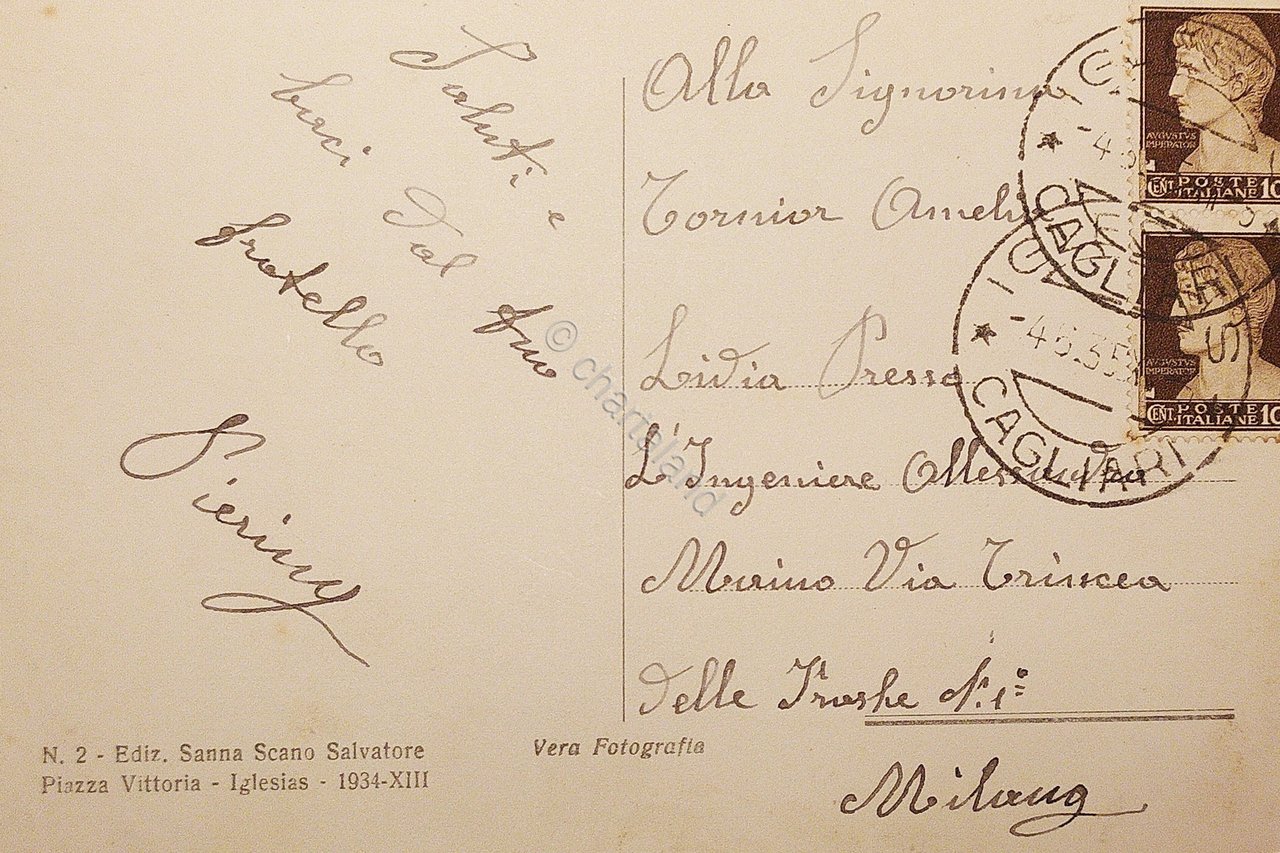 Saluti e
baci dal tuo
fratello
Pierino
N. 2 - Ediz. Sanna Scano Salvatore
Piazza Vittoria - Iglesias - 1934-XIII
Vera Fotografia
Alla Signorina
Tornior Amelia
Lidia Presso
L'Ingeniere Allessandro
Marino Via Trincea
delle Frashe N. 1º
Milano
AVGVSTVS
IMPERATOR
CENT. 10 POSTE
ITALIANE
AVGVSTVS
IMPERATOR
CENT. 10 POSTE
ITALIANE
CAGLIARI
-4.6.35
CAGLIARI
© chartaland